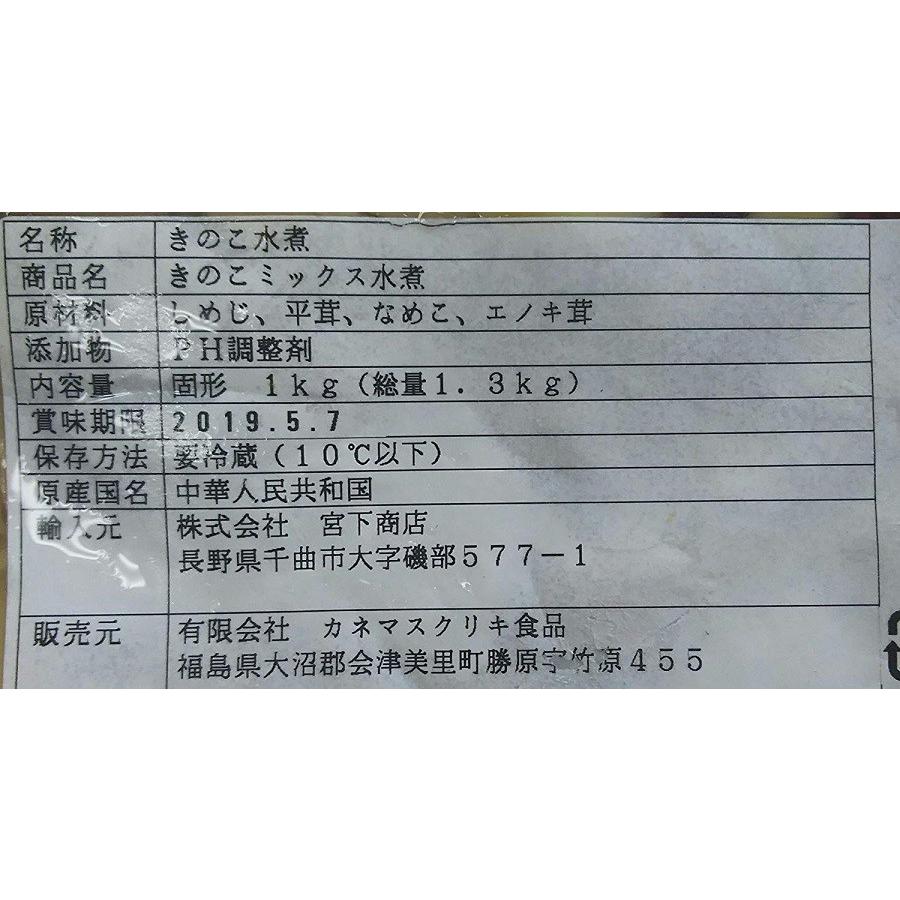 名称 きのこ水煮
商品名 きのこミックス水煮
原材料 しめじ、平茸、なめこ、エノキ茸
添加物 PH調整剤
内容量 固形 1kg(総量1.3kg)
賞味期限 2019.5.7
保存方法 要冷蔵(10℃以下)
原産国名 中華人民共和国
輸入元 株式会社 宮下商店
長野県千曲市大字磯部577-1
販売元 有限会社 カネマスクリキ食品
福島県大沼郡会津美里町勝原字竹原455